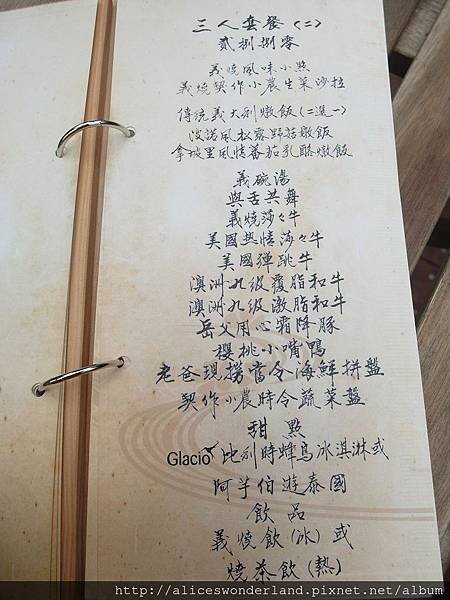 三人套餐(二)
貳捌捌零
義燒風味小點
義燒契作小農生菜沙拉
傳統義大利燉飯(二選一)
波諾風松露野菇燉飯
拿坡里風情蕃茄乳酪燉飯
義碗湯
與舌共舞
義燒莎々牛
美國熱情莎々牛
美國彈跳牛
澳洲九級覆脂和牛
澳洲九級激脂和牛
岳父用心霜降豚
櫻桃小嘴鴨
老爸現撈當令海鮮拼盤
契作小農時令蔬菜盤
甜點
Glacio 比利時蜂鳥冰淇淋或
阿芋伯遊泰國
飲品
義燒飲(冰)或
燒茶飲(熱)
http://aliceswonderland.pixnet.net/album